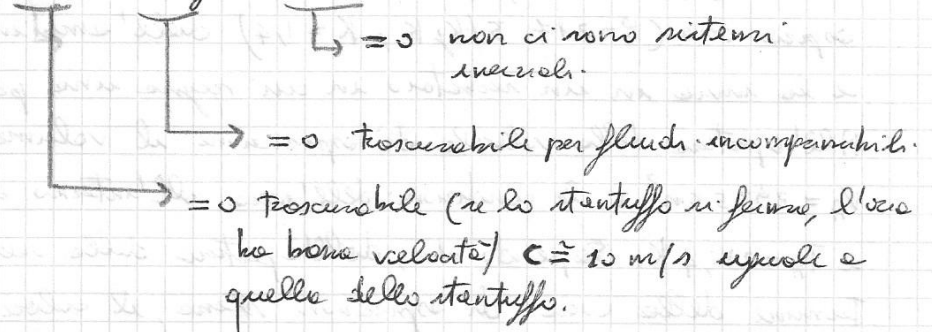 = 0 non ci sono sistemi
inerziali.
= 0 trascurabile per fluidi incomprimibili.
= 0 trascurabile (se lo stantuffo si ferma, l'aria
ha bassa velocità) c ≅ 10 m/s uguale a
quella dello stantuffo.